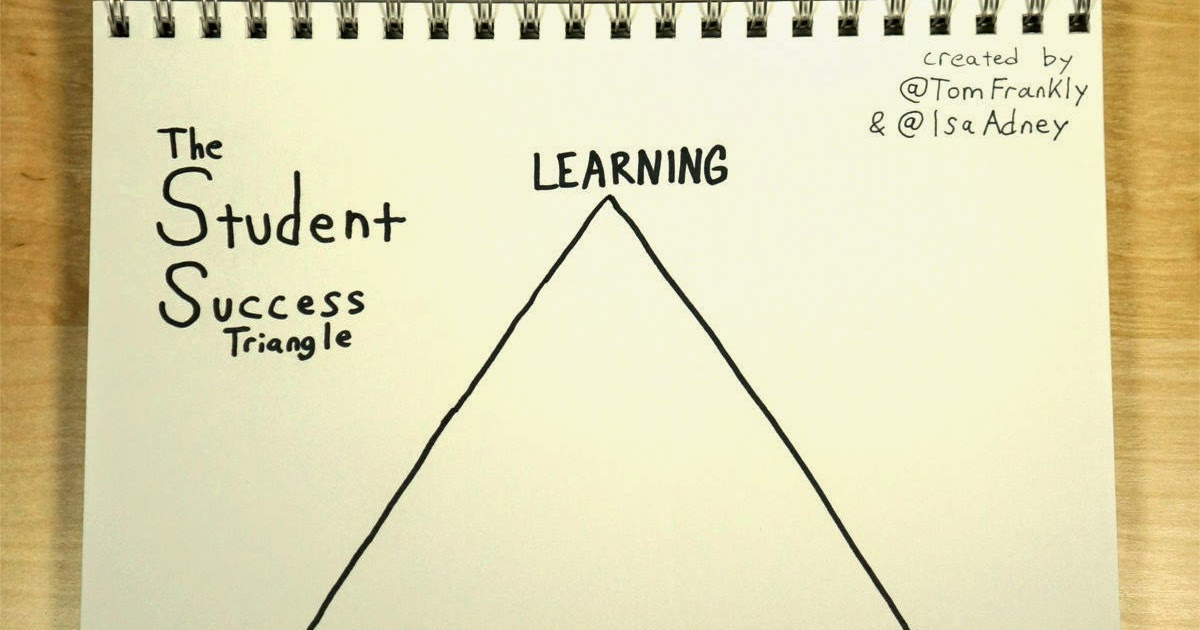 created by
@TomFrankly
& @IsaAdney
The
Student
Success
Triangle
LEARNING